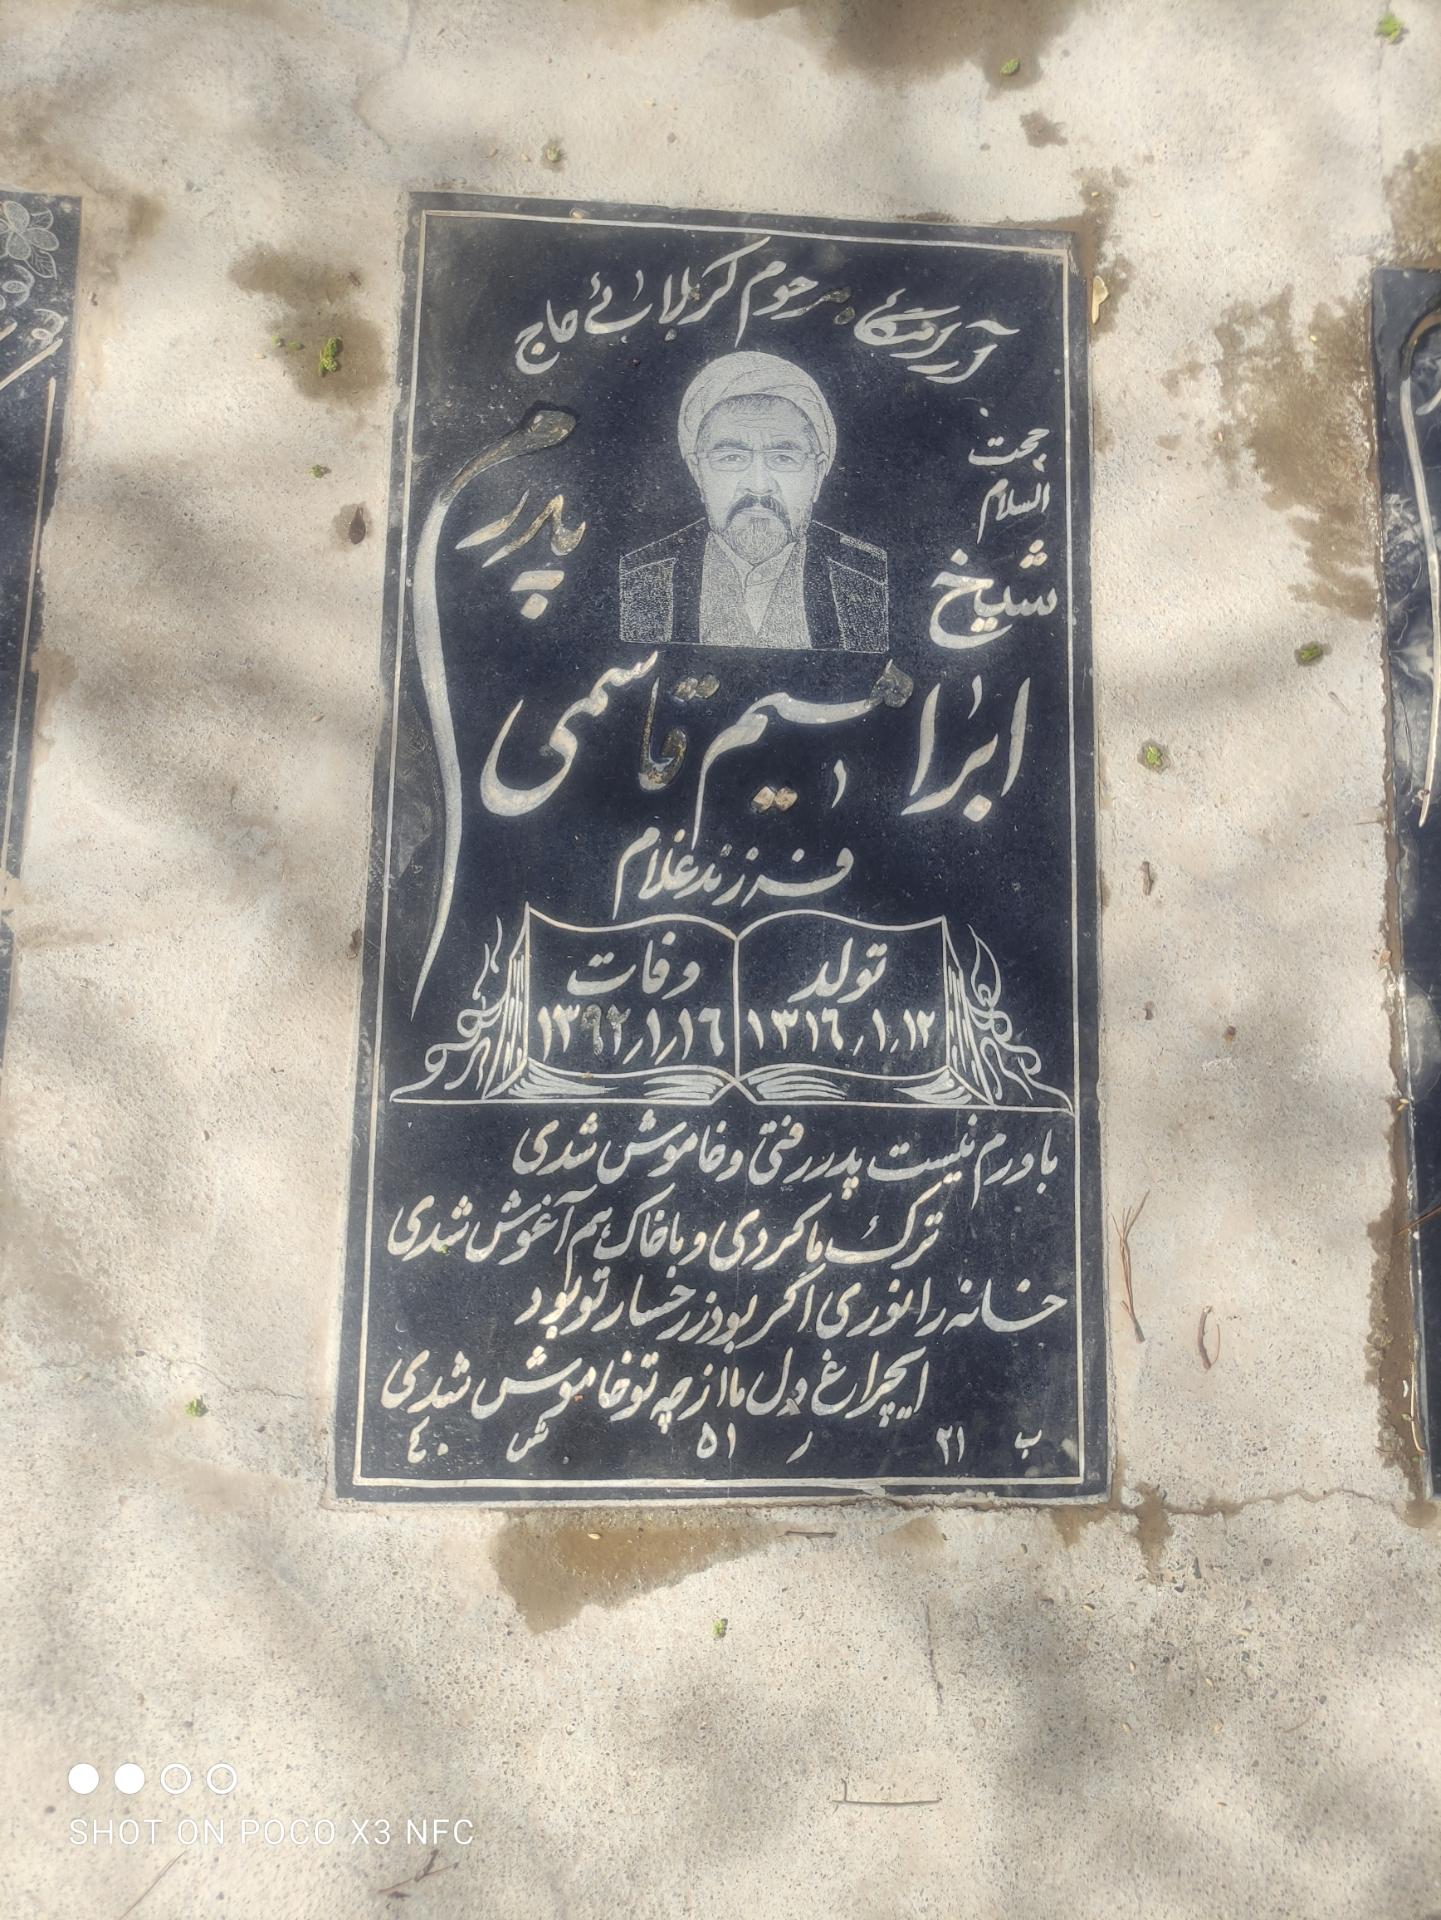 آرامگاه مرحوم کربلائے حاج
حجت
السلام
شیخ
پدرم
ابراهیم قاسمی
فرزند غلام
تولد
۱۳۱۶٫۱٫۱۲
وفات
۱۳۹۲٫۱٫۱۶
باورم نیست پدر رفتی و خاموش شدی
ترک ما کردی و با خاک هم آغوش شدی
خانه را نوری اگر بود ز رخسار تو بود
ایچراغ دل ما از چه تو خاموش شدی
ب ۲۱ ر ۵۱ ش ۴۰
SHOT ON POCO X3 NFC